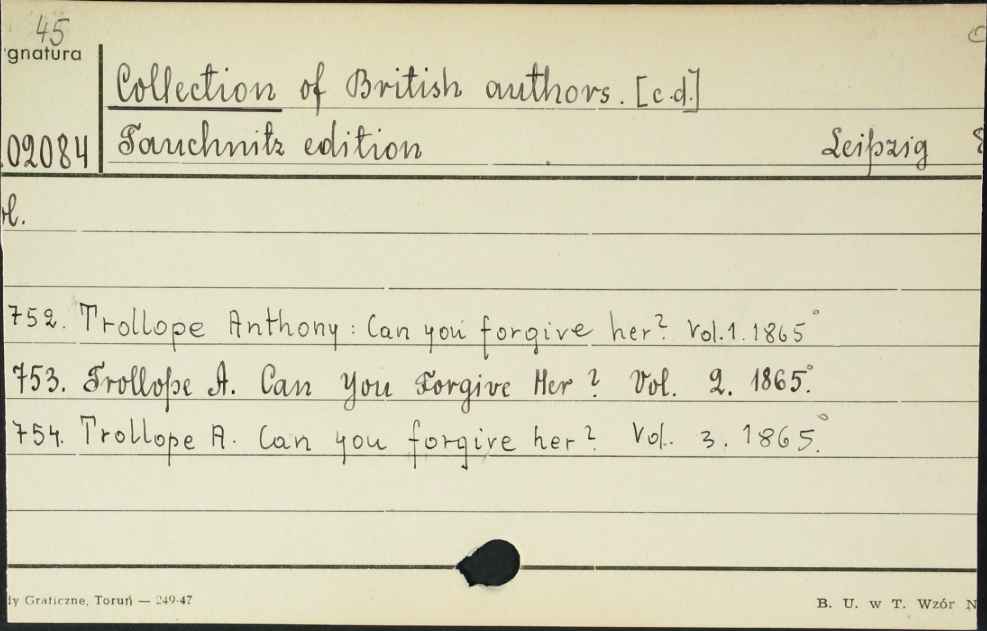 45
gnatura
Collection of British authors. [c.d.]
02084
Tauchnitz edition Leipzig 8
ol.
752. Trollope Anthony: Can you forgive her? Vol.1. 1865°
753. Trollope A. Can You Forgive Her? Vol. 2. 1865°.
754. Trollope A. Can you forgive her? Vol. 3. 1865°.
dy Graficzne, Toruń — 249-47
B. U. w T. Wzór N